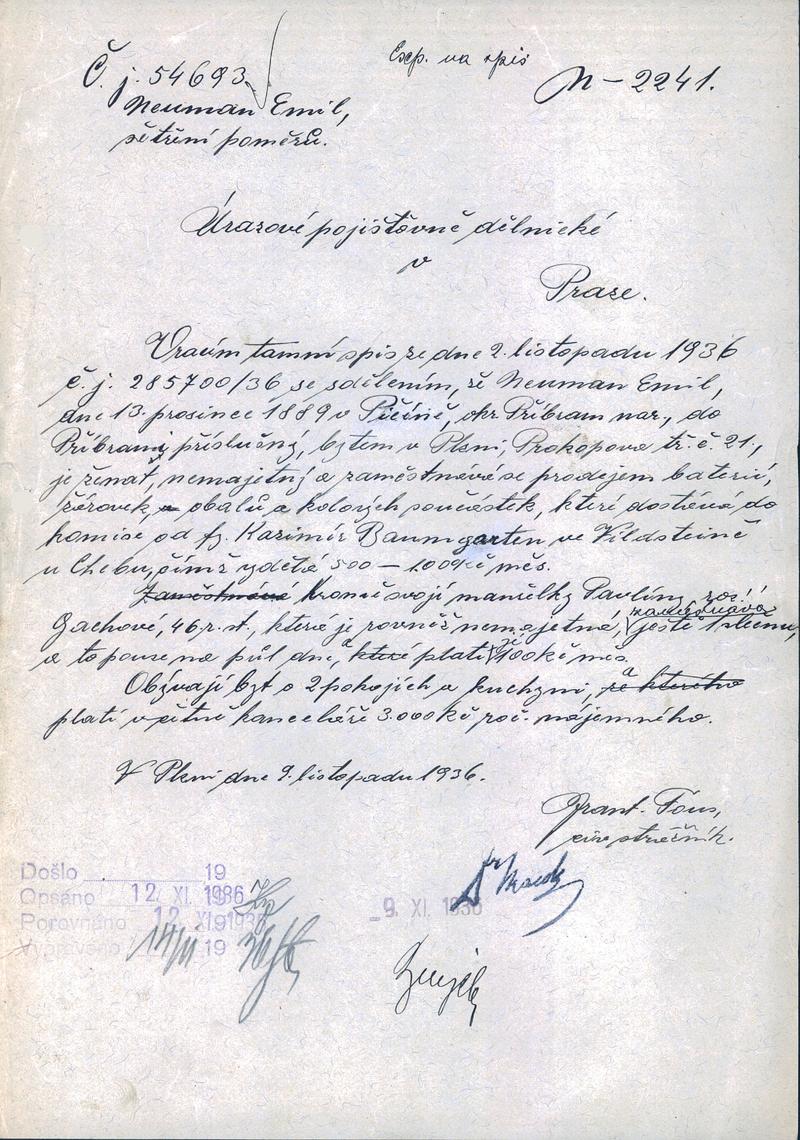 Č. j. 54693.
Exp. na spis
N – 2241.
Neuman Emil,
šetření poměrů.
Úrazové pojišťovně dělnické
v
Praze.
Vracím tamní spis ze dne 2. listopadu 1936
č. j. 285700/36 se sdělením, že Neuman Emil,
dne 13. prosince 1889 v Pičíně, okr. Příbram nar., do
Příbrami příslušný, bytem v Plzni, Prokopova tř. č. 21.,
je ženat, nemajetný a zaměstnává se prodejem baterií,
žárovek, a obalů a kolových součástek, které dostává do
komise od fy. Kazimír Baumgarten ve Vildsteině
u Chebu, čímž vydělá 500 – 100 Kč měs.
Zaměstnává Kromě svojí manželky Pavlíny, roz.
zaměstnává
Gachové, 46 r. st., která je rovněž nemajetná, ještě 1 slečnu,
a to pouze na půl dne, a které platí 100 Kč měs.
Obývají byt o 2 pokojích a kuchyni, a ze kterého
platí včetně kanceláře 3.000 Kč roč. nájemného.
V Plzni dne 9. listopadu 1936.
Frant. Fous,
civ. strážník.
Došlo 19
Opsáno 12. XI. 1936
Porovnáno 12. XI. 1936
Vypraveno 14/11 19
-9. XI. 1936